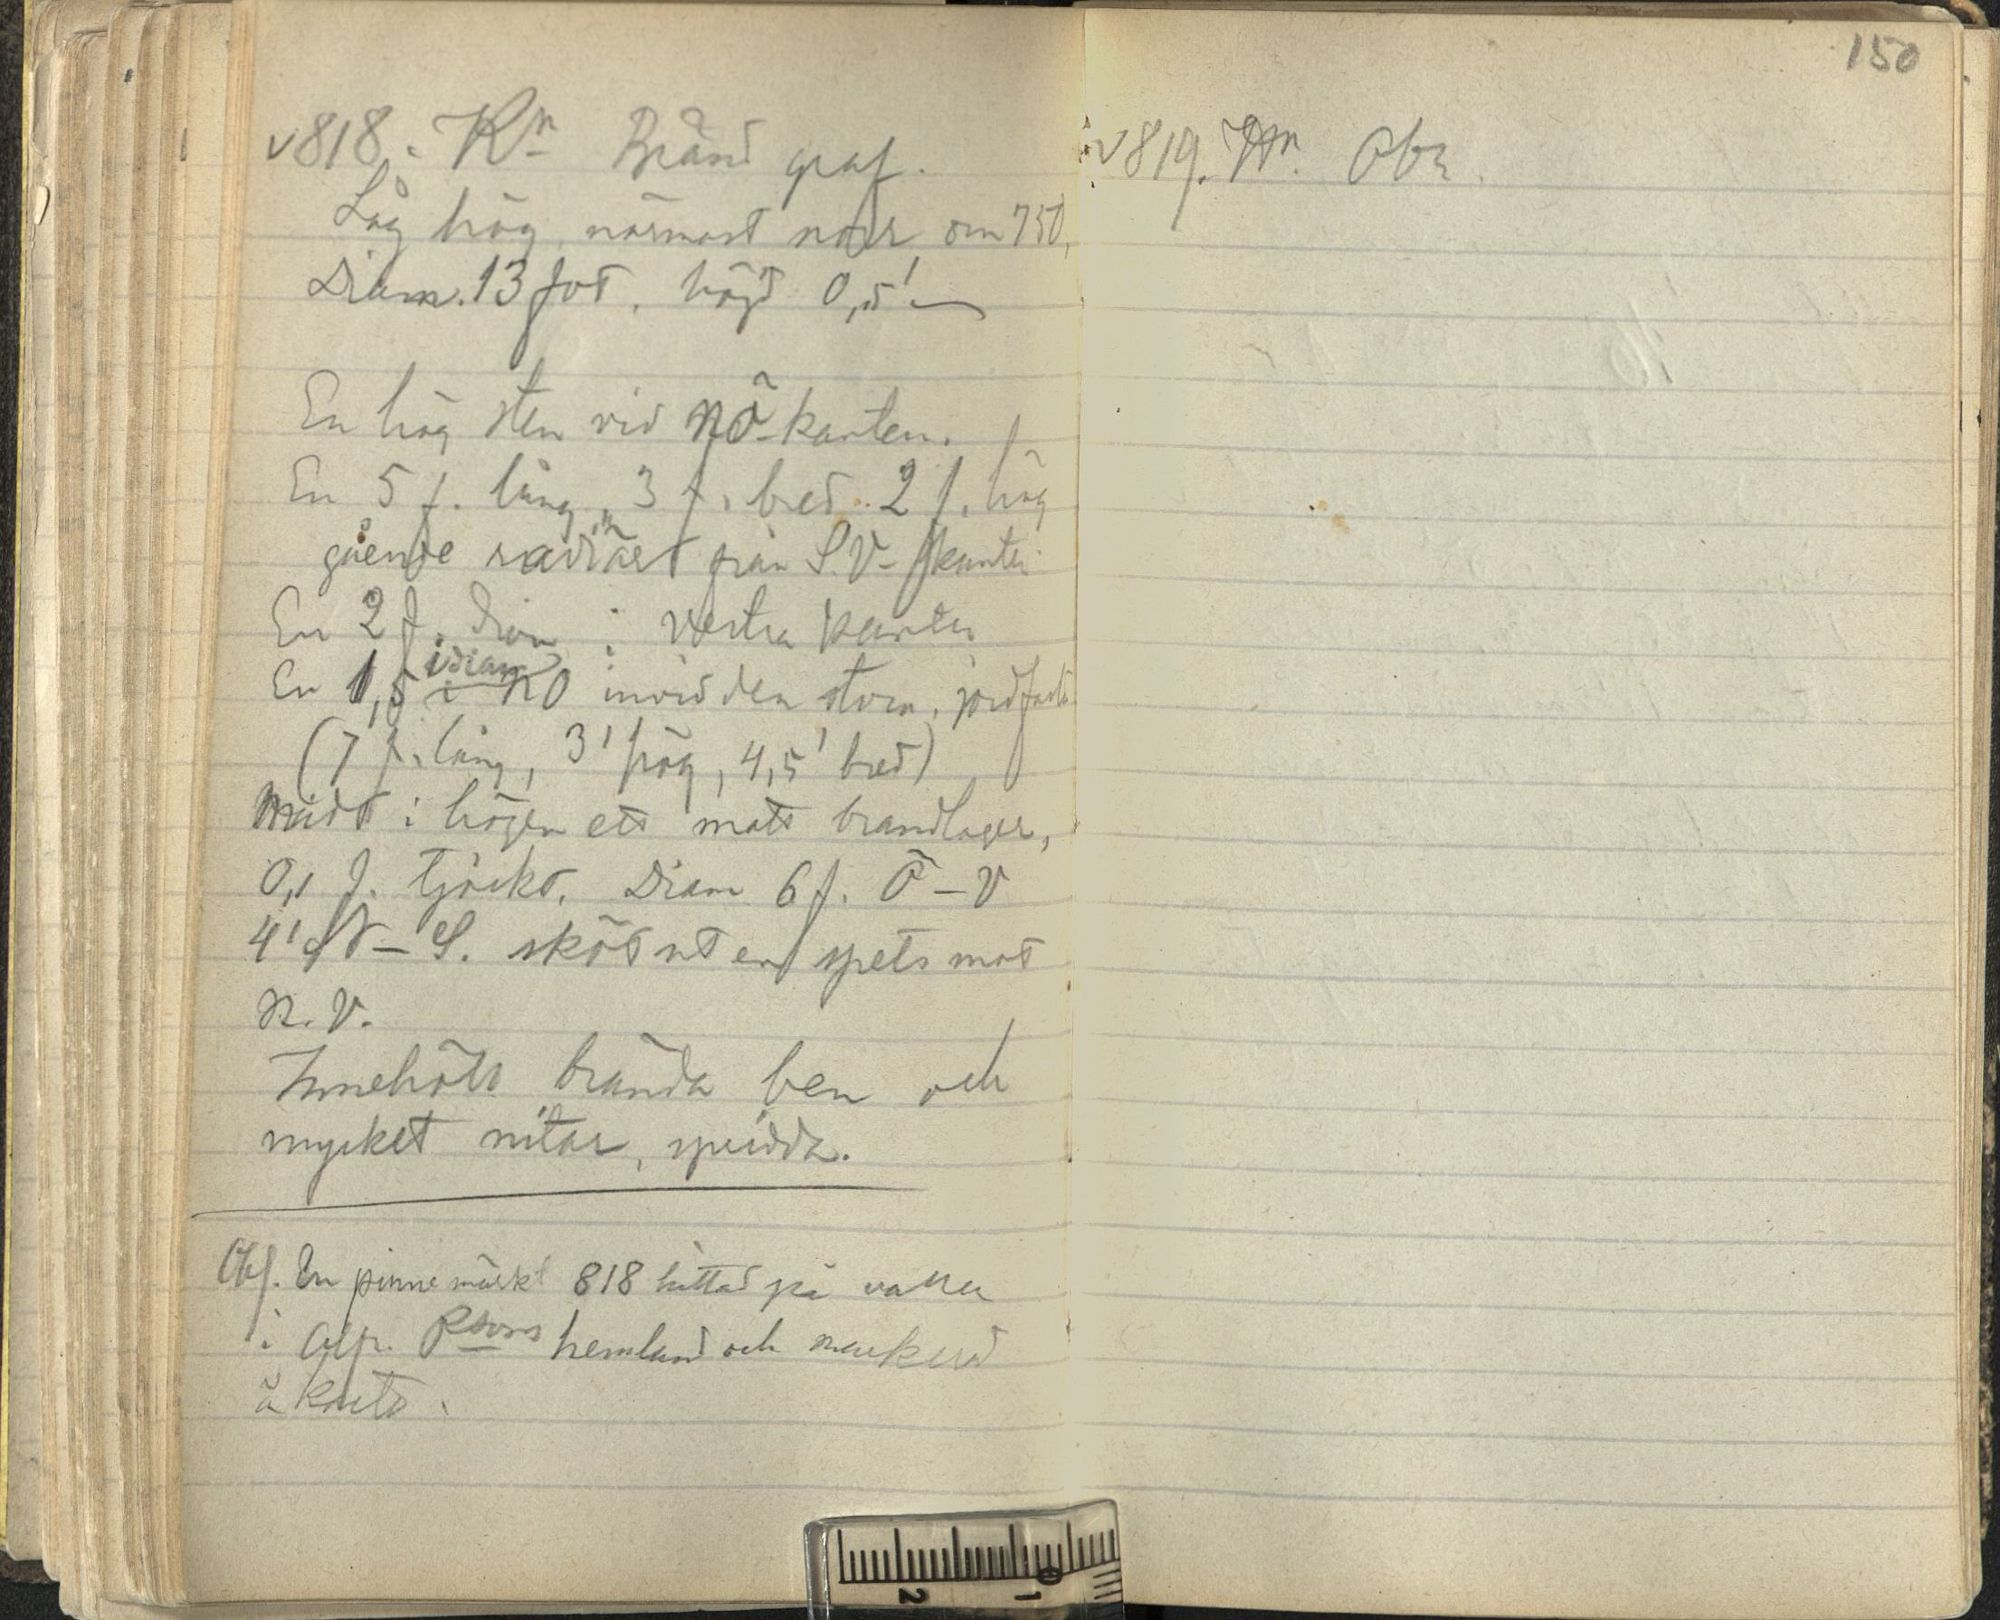 v818. Kn Bränd graf.
Låg hög, närmast norr om 750,
Diam. 13 fot, höjd 0,5'
En hög sten vid NÖ-kanten.
En 5 f. lång, 3 f. bred, 2 f. hög
gående radiärt från S.V-kanten
En 2 f. diam i vestra kanten
En 1,5 i diam NO invid den stora, jordfasta
(7 f. lång, 3' hög, 4,5' bred)
Midt i högen ett matt brandlager,
0,1 f. tjockt. Diam 6 f. Ö-V
4' N-S. sköt ut en spets mot
N.V.
Innehöll brända ben och
mycket nitar, spridda.
Obs. En pinne märkt 818 hittad på vallen
i hemland och markerad
å karta.
150
v819. Obr.
2
1
0